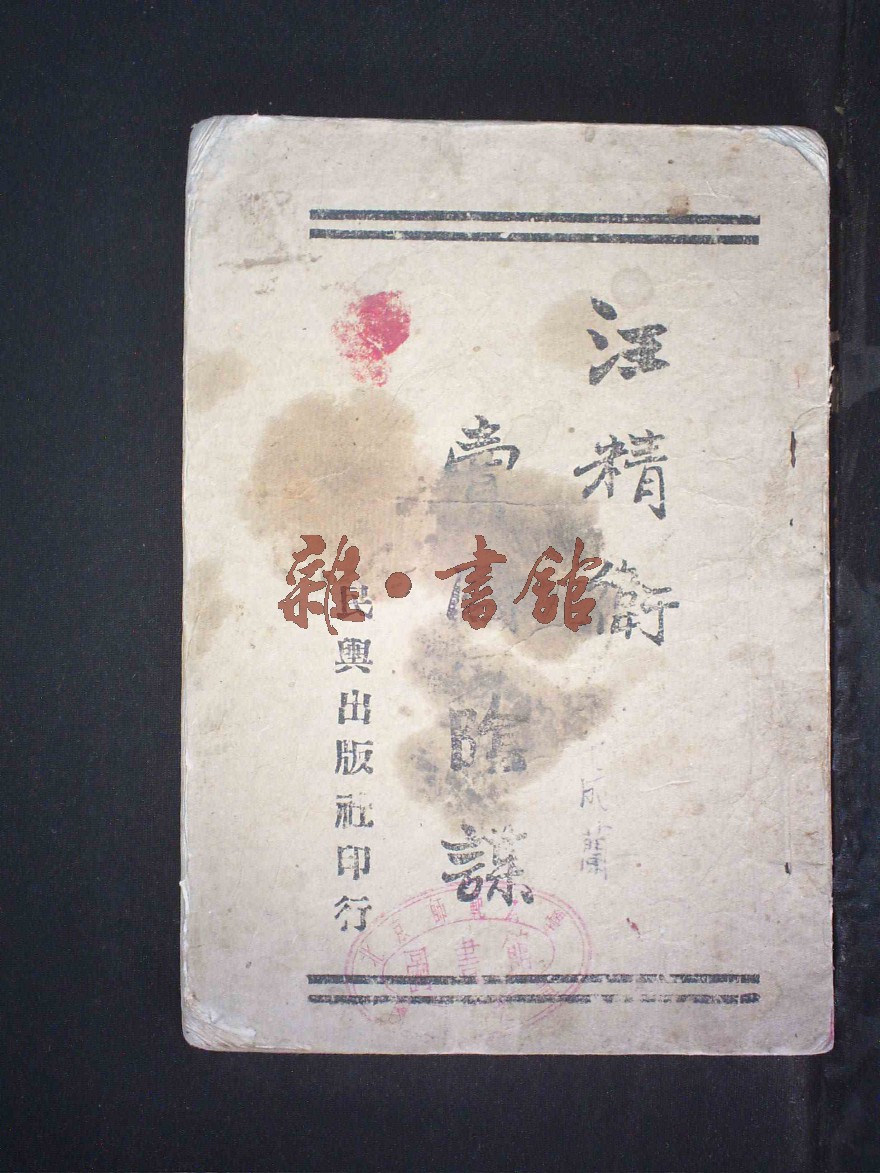 汪精衛
賣國陰謀
民興出版社印行
雜·書館
成蘭
北京師
圖書館